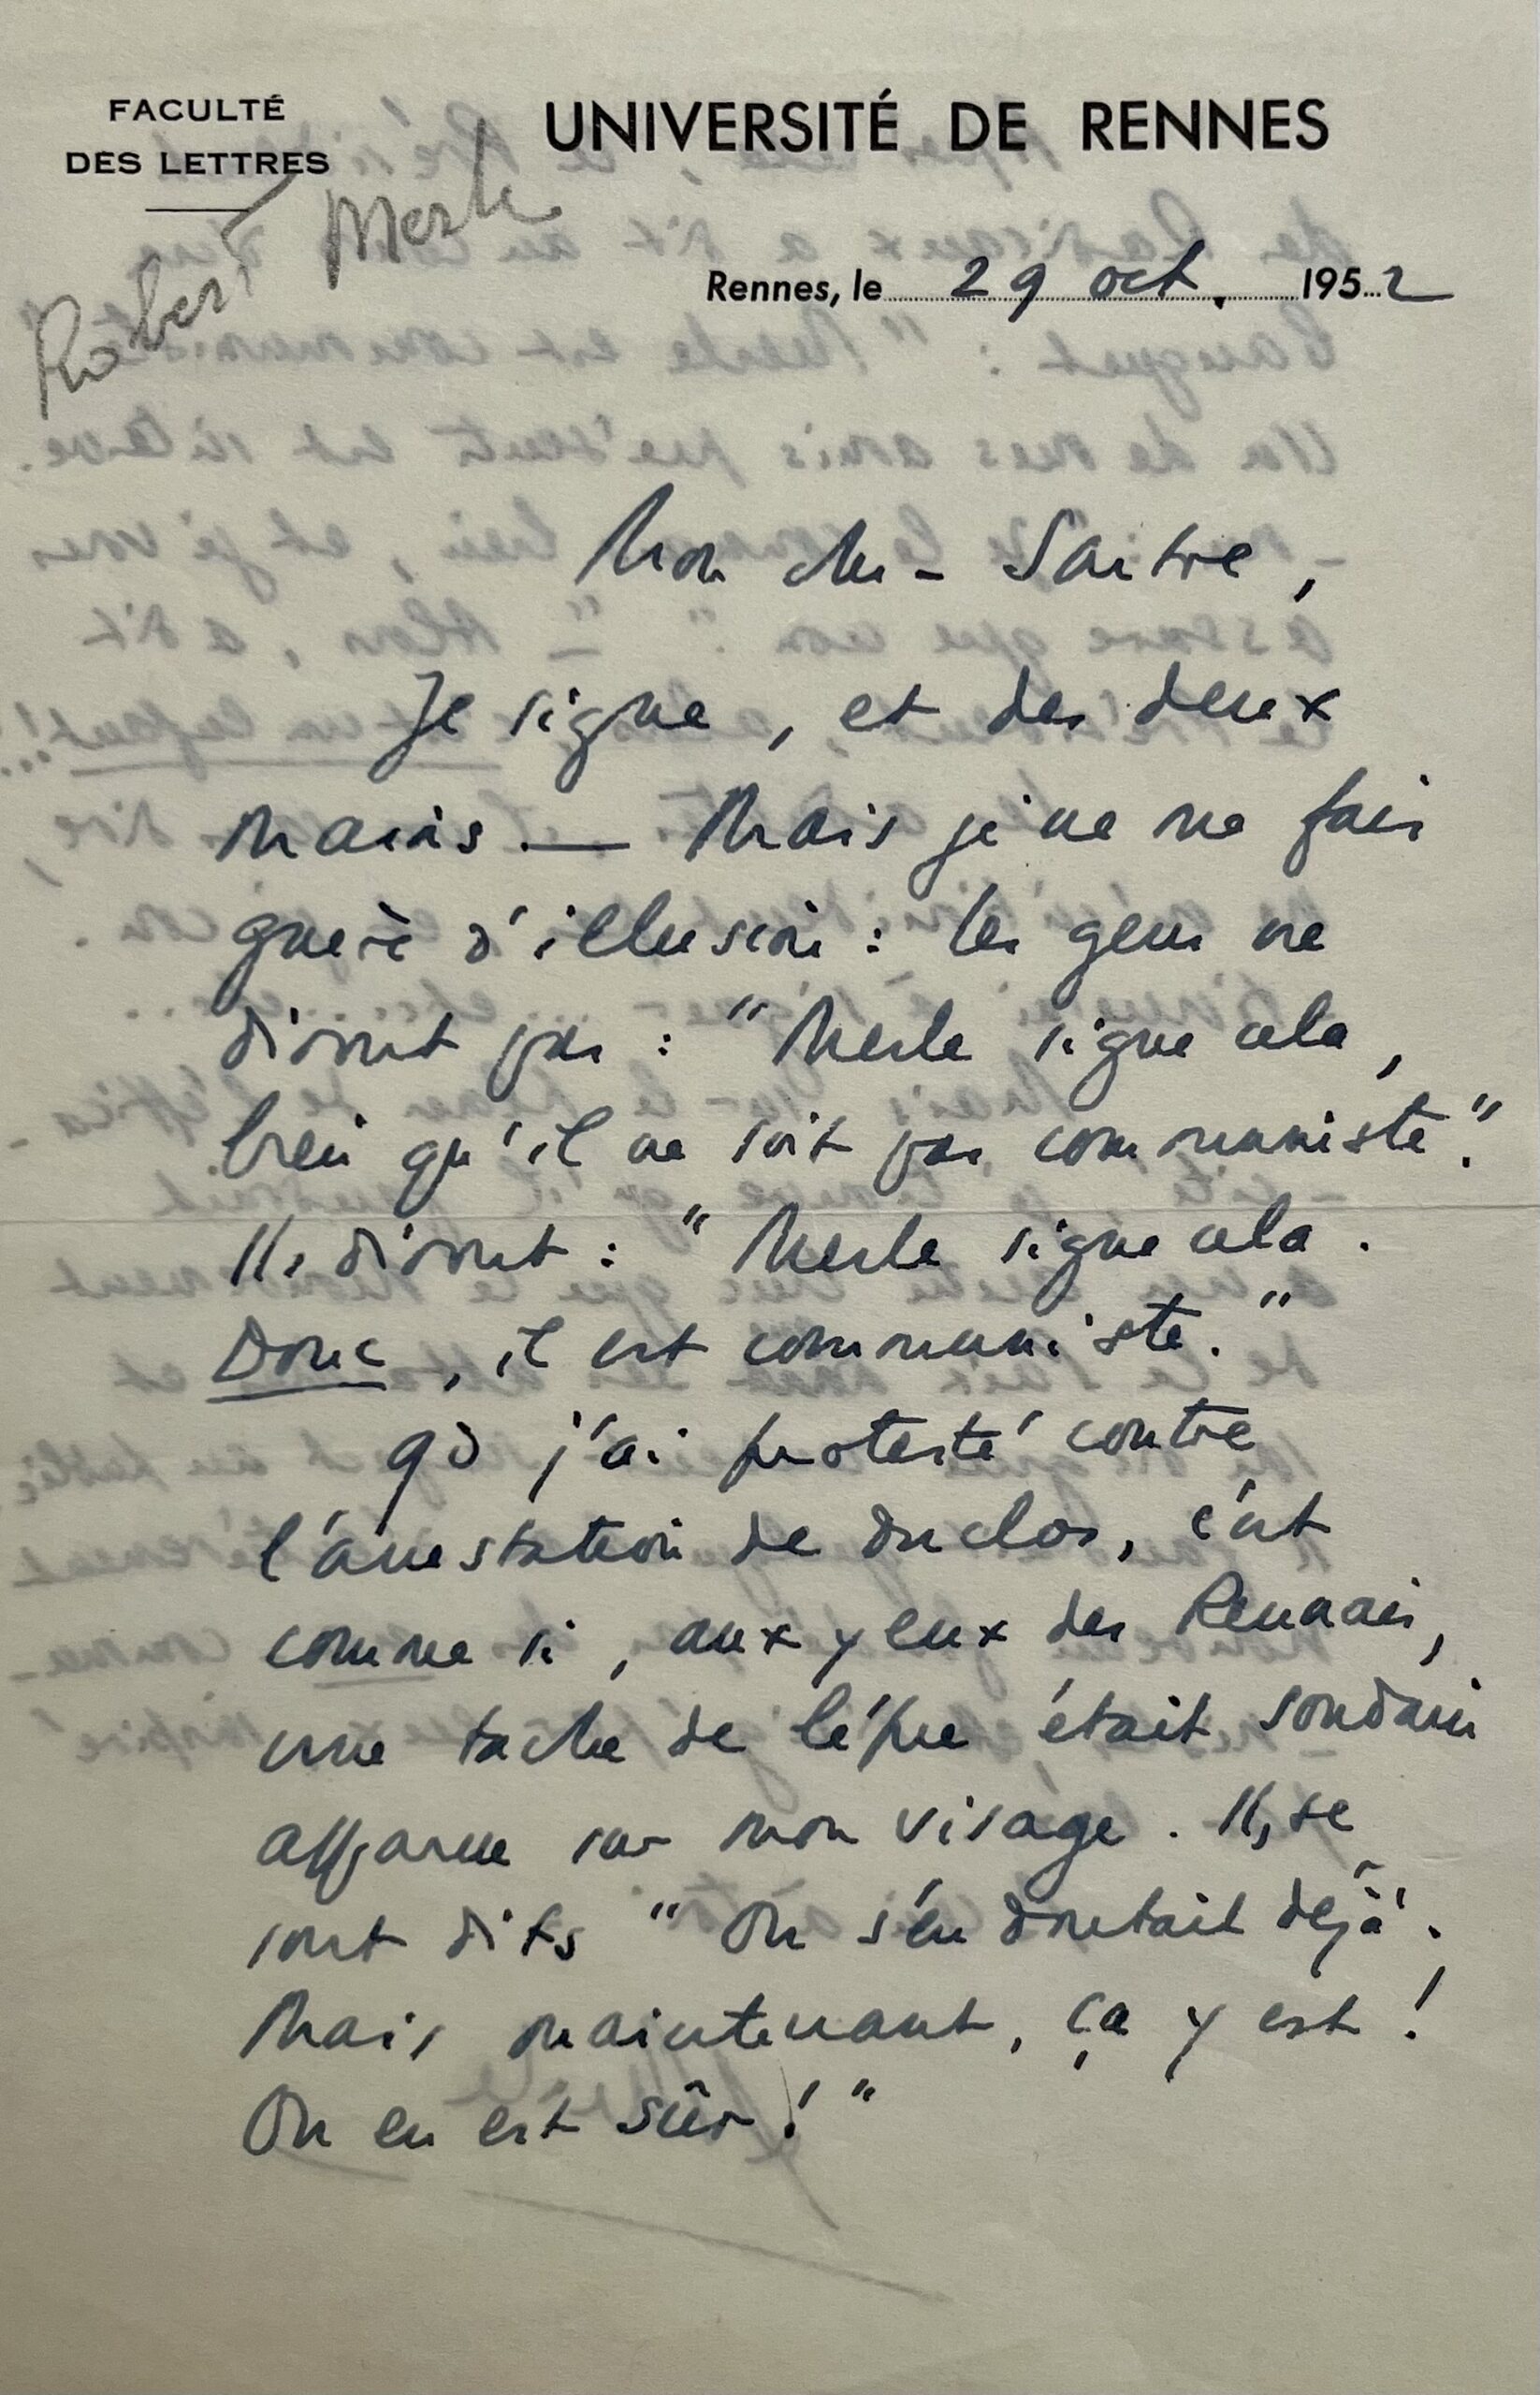 FACULTÉ
DES LETTRES
UNIVERSITÉ DE RENNES
Robert Merle
Rennes, le 29 oct. 1952
Mon cher Sartre,
Je signe, et des deux
mains — Mais je ne me fais
guère d'illusion : les gens ne
diront pas : "Merle signe cela,
bien qu'il ne soit pas communiste".
Ils diront : "Merle signe cela.
Donc, il est communiste."
Qd j'ai protesté contre
l'arrestation de Duclos, c'est
comme si, aux yeux des Rennais,
une tache de lèpre était soudain
apparue sur mon visage. Ils se
sont dits "On s'en doutait déjà.
Mais maintenant, ça y est !
On en est sûr !"